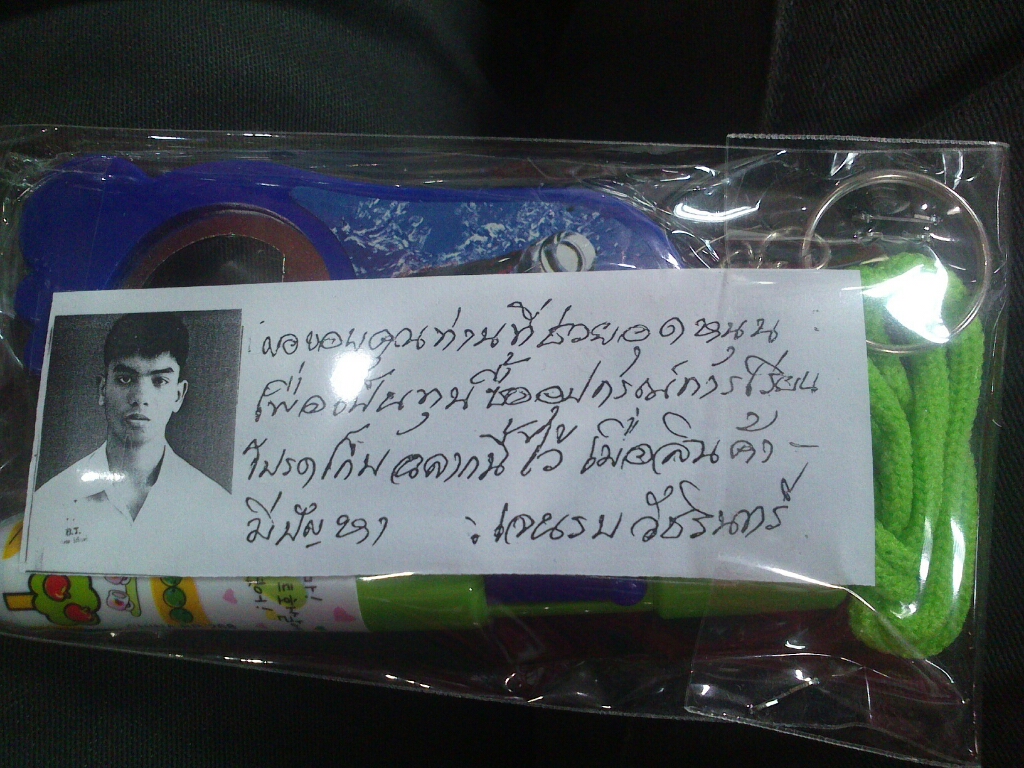 ผอขอบคุณท่านที่ช่วยอุดหนุน
เพื่อเป็นทุนซื้ออุปกรณ์การเรียน
โปรดเก็บฉลากนี้ไว้ เมื่อสินค้า-
มีปัญหา : เจนรบ วัชรินทร์